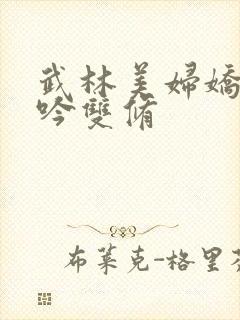 武林美婦嬌
吟雙脩
布萊克-格里芬